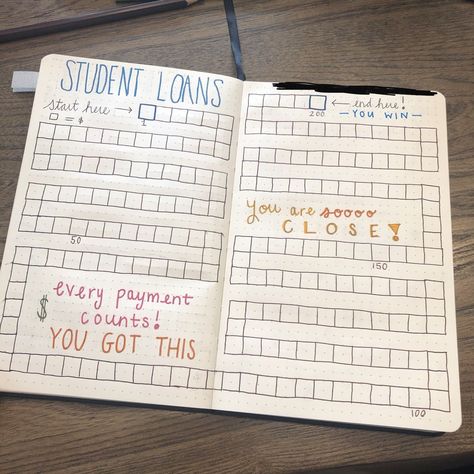 STUDENT LOANS
start here →
□ = $
1
50
$
every payment
counts!
YOU GOT THIS
← end here!
200
- YOU WIN -
You are soooo
CLOSE!
150
100